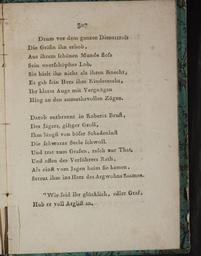 307
Drum vor dem ganzen Dienertross
Die Gräfin ihn erhob,
Aus ihrem schönen Munde floss
Sein unerschöpftes Lob,
Sie hielt ihn nicht als ihren Knecht,
Es gab sein Herz ihm Kindesrecht,
Ihr klares Auge mit Vergnügen
Hing an den anmuthsvollen Zügen.
Darob entbrennt in Roberts Brust,
Des Jägers, giftger Groll,
Ihm längst von böser Schadenlust
Die schwarze Seele schwoll.
Und trat zum Grafen, rasch zur That,
Und offen des Verführers Rath,
Als einst vom Jagen heim sie kamen,
Streut ihm ins Herz des Argwohns Saamen.
"Wie seid ihr glücklich, edler Graf,
Hub er voll Arglist an,